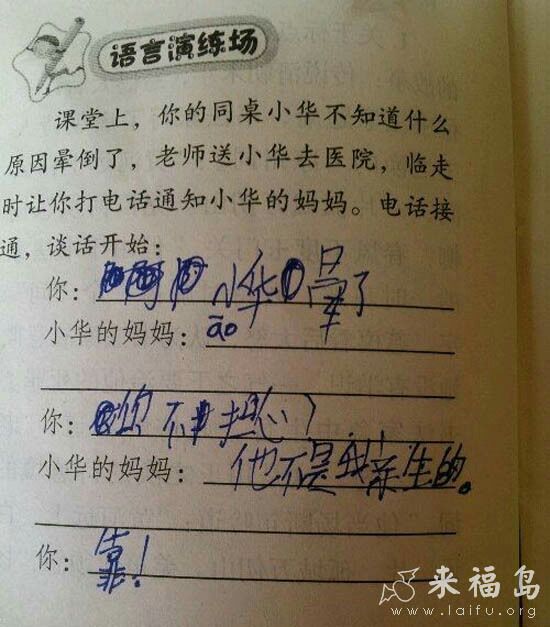 语言演练场
课堂上，你的同桌小华不知道什么
原因晕倒了，老师送小华去医院，临走
时让你打电话通知小华的妈妈。电话接
通，谈话开始：
你：小华晕了
小华的妈妈：āo
你：你不担心？
小华的妈妈：他不是我亲生的。
你：靠！
来福岛
www.laifu.org